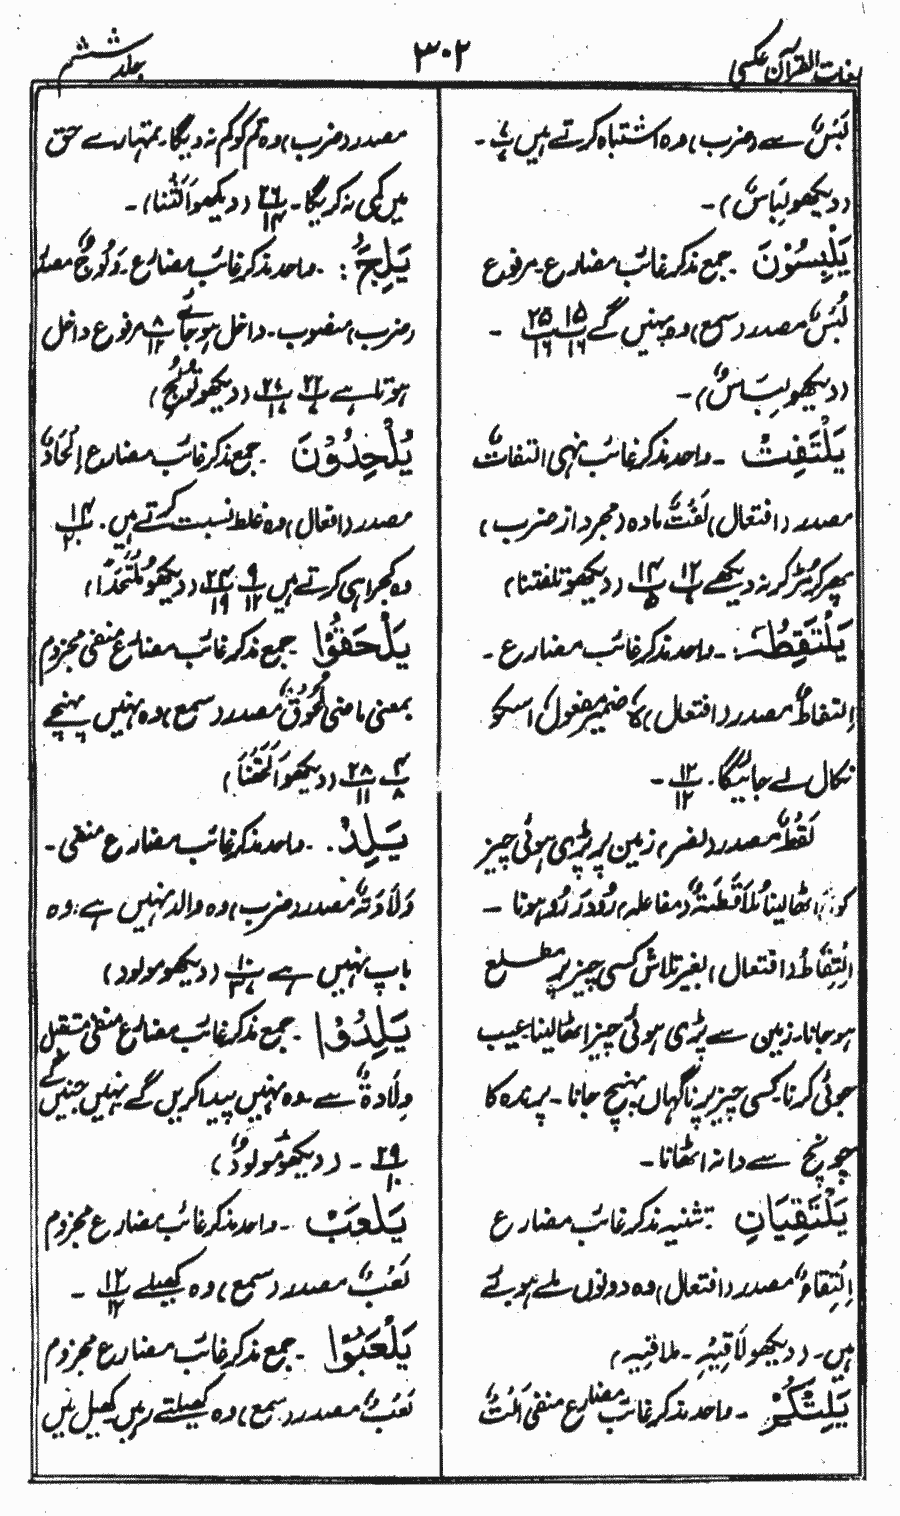 لغات القرآن عکسی
۳۰۲
جلد ششم
لَبْسٌ سے (ضرب) وہ اشتباہ کرتے ہیں ۔
(دیکھو لِبَاسٌ) ۔
یَلْبِسُوْنَ ۔ جمع مذکر غائب مضارع مرفوع
لُبْسٌ مصدر (سمع) وہ پہنیں گے ۱۵/۱۶ ۲۵/۱۶ ۔
(دیکھو لِبَاسٌ) ۔
یَلْتَفِتْ ۔ واحد مذکر غائب نہی التفات
مصدر (افتعال) لَفْتٌ مادہ (مجرد از ضرب)
پھر کر مڑ کر نہ دیکھے ۱۲ ۱۴/۵ (دیکھو تلفتنا)
یَلْتَقِطْهُ : ۔ واحد مذکر غائب مضارع ۔
التقاط مصدر (افتعال) ہٗ ضمیر مفعول اسکو
نکال لے جائیگا ۔ ۱۲/۱۲ ۔
لَقْطٌ مصدر (نصر) زمین پر پڑی ہوئی چیز
کو اٹھا لینا مُلَاقَطَةٌ (مفاعلہ) رُو دَر رُو ہونا ۔
اِلْتِقَاطٌ (افتعال) بغیر تلاش کسی چیز پر مطلع
ہو جانا ۔ زمین سے پڑی ہوئی چیز اٹھا لینا عیب
جوئی کرنا کسی چیز پر ناگہاں پہنچ جانا ۔ پرندہ کا
چونچ سے دانہ اٹھانا ۔
یَلْتَقِیَانِ ۔ تثنیہ مذکر غائب مضارع
اِلْتِقَاءٌ مصدر (افتعال) وہ دونوں ملے ہوئے
ہیں ۔ (دیکھو لَاقِیْهِ ۔ ملاقیہ)
یَلِتْكُمْ ۔ واحد مذکر غائب مضارع منفی اَلْتٌ
مصدر (ضرب) وہ تم کو کم نہ دیگا ۔ تمہارے حق
میں کمی نہ کریگا ۔ ۲۶/۱۴ (دیکھو اَلَتْنَا) ۔
یَلِجَ : ۔ واحد مذکر غائب مضارع ۔ وُلُوْجٌ مصدر
(ضرب) منصوب ۔ داخل ہو جائے ۸/۱۲ مرفوع داخل
ہوتا ہے ۲۲ ۲۷ (دیکھو تُوْلِجُ)
یُلْحِدُوْنَ ۔ جمع مذکر غائب مضارع اِلْحَادٌ
مصدر (افعال) وہ غلط نسبت کرتے ہیں ۔ ۱۴/۲۰
وہ کجراہی کرتے ہیں ۹/۱۲ ۲۴/۱۹ (دیکھو مُلْتَحَدًا)
یَلْحَقُوْا ۔ جمع مذکر غائب مضارع منفی مجزوم
بمعنی ماضی لُحُوْقٌ مصدر (سمع) وہ نہیں پہنچے
۴/۸ ۲۸/۱۱ (دیکھو اَلْحَقْنَا)
یَلِدْ ۔ ۔ واحد مذکر غائب مضارع منفی ۔
وِلَادَةٌ مصدر (ضرب) وہ والد نہیں ہے : وہ
باپ نہیں ہے ۱۰ (دیکھو مولود)
یَلِدُوْا ۔ جمع مذکر غائب مضارع منفی مستقل
وِلَادَةٌ سے ۔ وہ نہیں پیدا کریں گے نہیں جنیں گے
۲۹/۱۰ ۔ (دیکھو مَولودٌ)
یَلْعَبْ ۔ واحد مذکر غائب مضارع مجزوم
لَعْبٌ مصدر (سمع) وہ کھیلے ۱۲/۱۲ ۔
یَلْعَبُوْا ۔ جمع مذکر غائب مضارع مجزوم
لَعْبٌ مصدر (سمع) وہ کھیلتے رہیں کھیل میں